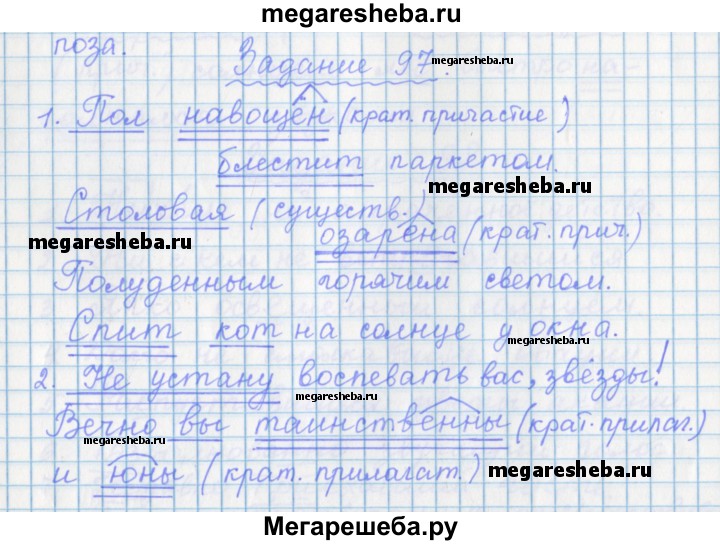 megaresheba.ru
поза.
Задание 97.
megaresheba.ru
1. Пол навощён (крат. причастие)
блестит паркетом.
megaresheba.ru
Столовая (существ.)
megaresheba.ru
озарена (крат. прич.)
Полуденным горячим светом.
Спит кот на солнце у окна.
megaresheba.ru
2. Не устану воспевать вас, звёзды!
megaresheba.ru
Вечно вы таинственны (крат. прилаг.)
megaresheba.ru
и юны (крат. прилагат.)
megaresheba.ru
Мегарешеба.ру